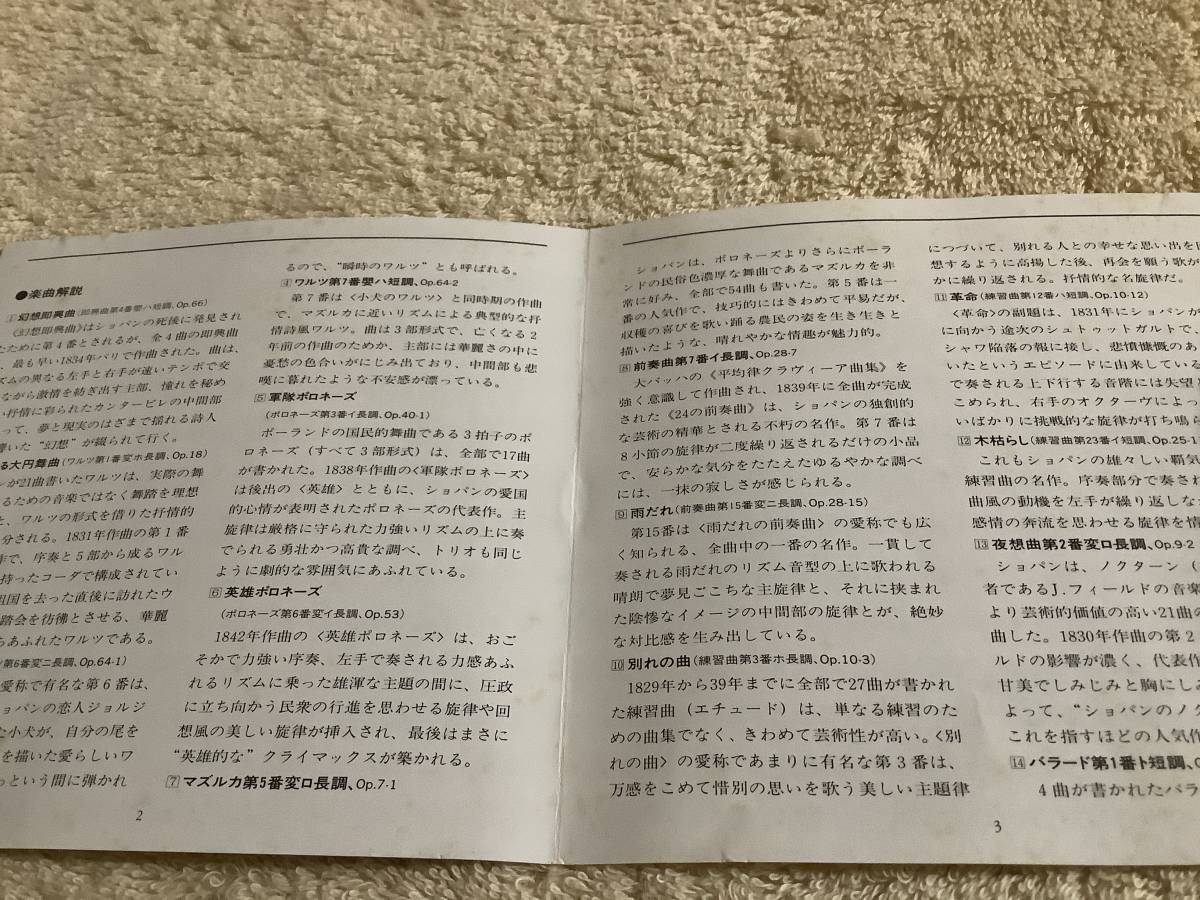 ●楽曲解説
①幻想即興曲(即興曲第4番嬰ハ短調、Op.66)
《幻想即興曲》はショパンの死後に発見され
たために第4番とされるが、全4曲の即興曲
、最も早い1834年パリで作曲された。曲は、
ズムの異なる左手と右手が速いテンポで交
ながら激情を紡ぎ出す主部、憧れを秘め
い抒情に彩られたカンタービレの中間部
って、夢と現実のはざまで揺れる詩人
導いた“幻想”が綴られて行く。
る大円舞曲(ワルツ第1番変ホ長調、Op.18)
ンが21曲書いたワルツは、実際の舞
るための音楽ではなく舞踏を理想
と、ワルツの形式を借りた抒情的
分される。1831年作曲の第1番
作で、序奏と5部から成るワル
持ったコーダで構成されてい
祖国を去った直後に訪れたウ
踏会を彷彿とさせる、華麗
ちあふれたワルツである。
ツ第6番変ニ長調、Op.64-1)
愛称で有名な第6番は、
ョパンの恋人ジョルジ
た小犬が、自分の尾を
を描いた愛らしいワ
っという間に弾かれ
るので、“瞬時のワルツ”とも呼ばれる。
④ワルツ第7番嬰ハ短調、Op.64-2
第7番は〈小犬のワルツ〉と同時期の作曲
で、マズルカに近いリズムによる典型的な抒
情詩風ワルツ。曲は3部形式で、亡くなる2
年前の作曲のためか、主部には華麗さの中に
憂愁の色合いがにじみ出ており、中間部も悲
嘆に暮れたような不安感が漂っている。
⑤軍隊ポロネーズ
(ポロネーズ第3番イ長調、Op.40-1)
ポーランドの国民的舞曲である3拍子のポ
ロネーズ(すべて3部形式)は、全部で17曲
が書かれた。1838年作曲の〈軍隊ポロネーズ〉
は後出の〈英雄〉とともに、ショパンの愛国
的心情が表明されたポロネーズの代表作。主
旋律は厳格に守られた力強いリズムの上に奏
でられる勇壮かつ高貴な調べ、トリオも同じ
ように劇的な雰囲気にあふれている。
⑥英雄ポロネーズ
(ポロネーズ第6番変イ長調、Op.53)
1842年作曲の〈英雄ポロネーズ〉は、おご
そかで力強い序奏、左手で奏される力感あふ
れるリズムに乗った雄渾な主題の間に、圧政
に立ち向かう民衆の行進を思わせる旋律や回
想風の美しい旋律が挿入され、最後はまさに
“英雄的な”クライマックスが築かれる。
⑦マズルカ第5番変ロ長調、Op.7-1
2
ショパンは、ポロネーズよりさらにポーラ
ンドの民俗色濃厚な舞曲であるマズルカを非
常に好み、全部で54曲も書いた。第5番は一
番の人気作で、技巧的にはきわめて平易だが、
収穫の喜びを歌い踊る農民の姿を生き生きと
描いたような、晴れやかな情趣が魅力的。
⑧前奏曲第7番イ長調、Op.28-7
大バッハの《平均律クラヴィーア曲集》を
強く意識して作曲され、1839年に全曲が完成
された《24の前奏曲》は、ショパンの独創的
な芸術の精華とされる不朽の名作。第7番は
8小節の旋律が二度繰り返されるだけの小品
で、安らかな気分をたたえたゆるやかな調べ
には、一抹の寂しさが感じられる。
⑨雨だれ(前奏曲第15番変ニ長調、Op.28-15)
第15番は〈雨だれの前奏曲〉の愛称でも広
く知られる、全曲中の一番の名作。一貫して
奏される雨だれのリズム音型の上に歌われる
晴朗で夢見ごこちな主旋律と、それに挟まれ
た陰惨なイメージの中間部の旋律とが、絶妙
な対比感を生み出している。
⑩別れの曲(練習曲第3番ホ長調、Op.10-3)
1829年から39年までに全部で27曲が書かれ
た練習曲(エチュード)は、単なる練習のた
めの曲集でなく、きわめて芸術性が高い。〈別
れの曲〉の愛称であまりに有名な第3番は、
万感をこめて惜別の思いを歌う美しい主題律
につづいて、別れる人との幸せな思い出を
想するように高揚した後、再会を願う歌が
かに繰り返される。抒情的な名旋律だ。
⑪革命(練習曲第12番ハ短調、Op.10-12)
〈革命〉の副題は、1831年にショパンが
に向かう途次のシュトゥットガルトで、
シャワ陥落の報に接し、悲憤慷慨のあ
いたというエピソードに由来している
で奏される上下行する音階には失望と
こめられ、右手のオクターヴによっ
いばかりに挑戦的な旋律が打ち鳴ら
⑫木枯らし(練習曲第23番イ短調、Op.25-1
これもショパンの雄々しい覇気
練習曲の名作。序奏部分で奏され
曲風の動機を左手が繰り返しな
感情の奔流を思わせる旋律を情
⑬夜想曲第2番変ロ長調、Op.9-2
ショパンは、ノクターン(
者であるJ.フィールドの音楽
より芸術的価値の高い21曲の
曲した。1830年作曲の第2
ルドの影響が濃く、代表作
甘美でしみじみと胸にしみ
よって、“ショパンのノク
これを指すほどの人気作
⑭バラード第1番ト短調、O
4曲が書かれたバラ
3